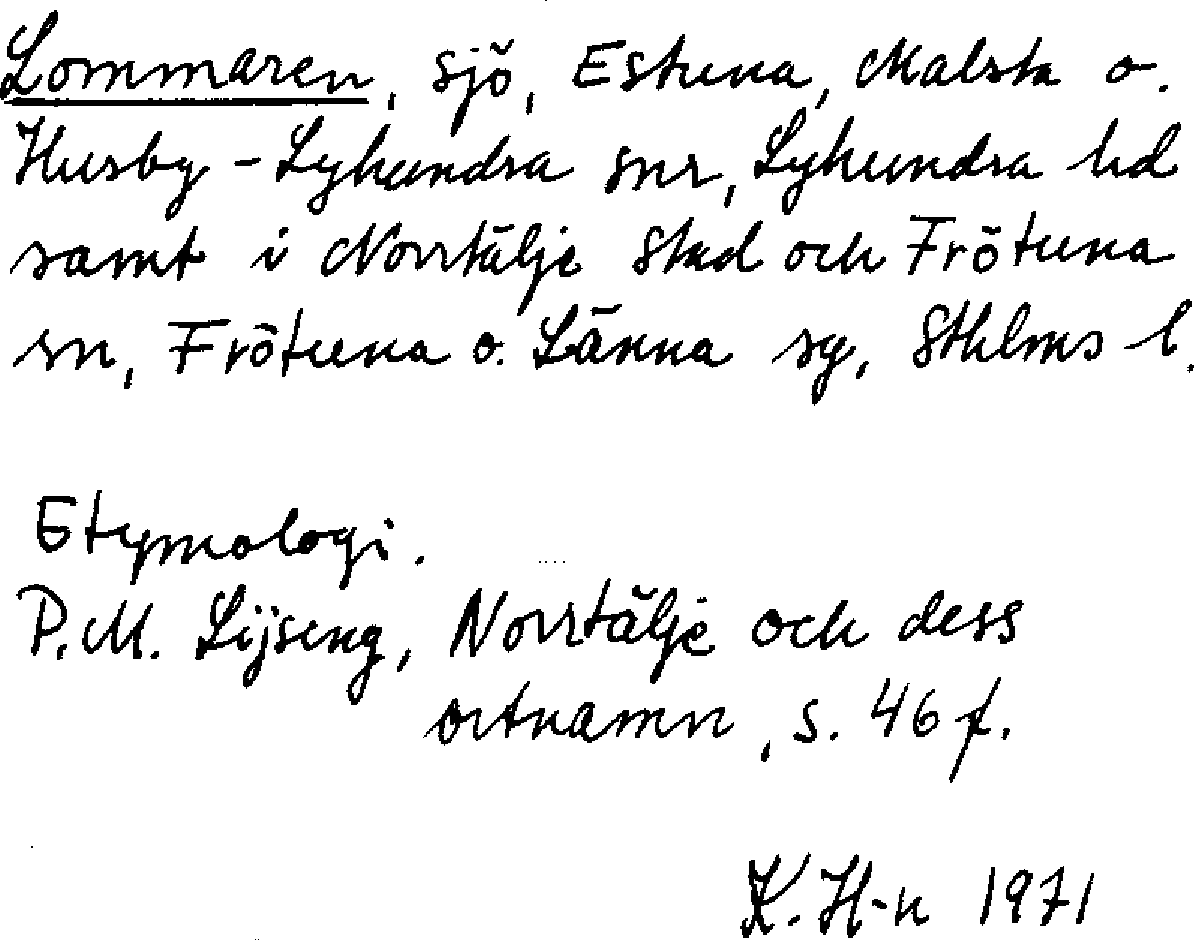 Lommaren, sjö, Estuna, Malsta o.
Husby-Lyhundra snr, Lyhundra hd
samt i Norrtälje stad och Frötuna
sn, Frötuna o. Länna sg, Sthlms l.
Etymologi.
P.M. Lijsing, Norrtälje och dess
ortnamn, s. 46 f.
K. H-n 1971